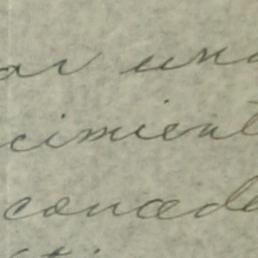 ar una
cimient
concede